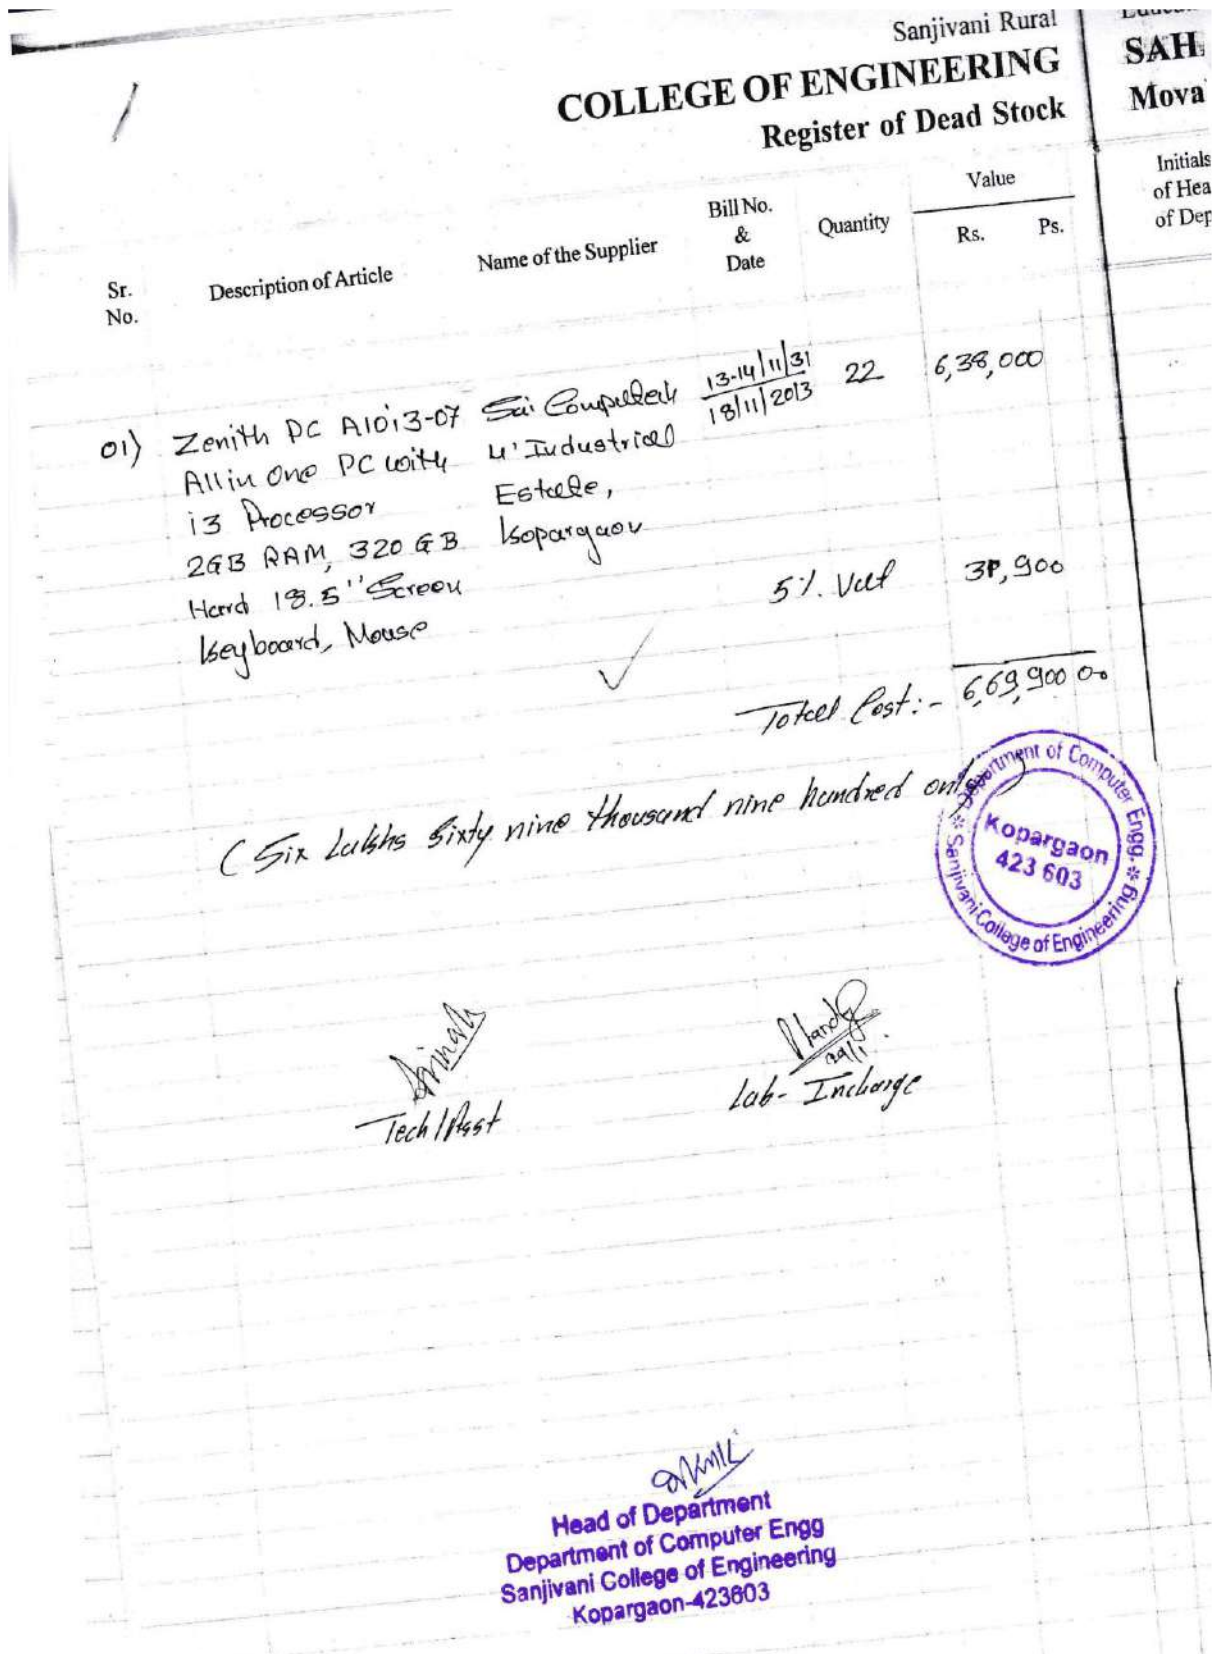 Sanjivani Rural
COLLEGE OF ENGINEERING
Register of Dead Stock
SAH
Mova
Sr. No.
Description of Article
Name of the Supplier
Bill No. & Date
Quantity
Value
Rs.
Ps.
Initials
of Hea
of Dep
01) Zenith PC A10i3-07
All in One PC with
i3 Processor
2GB RAM, 320 GB
Hard 18.5" Screen
Keyboard, Mouse
Sai
4' Industrial
Estate,
Kopargaon
13-14/11/31
18/11/2013
22
6,38,000
5%. Vat
31,900
Total Cost:- 6,69,900 00
(Six Lakhs Sixty nine thousand nine hundred only)
Department of Computer Engg. * Sanjivani College of Engineering *
Kopargaon
423 603
Tech/Asst
Lab-Incharge
Head of Department
Department of Computer Engg
Sanjivani College of Engineering
Kopargaon-423603